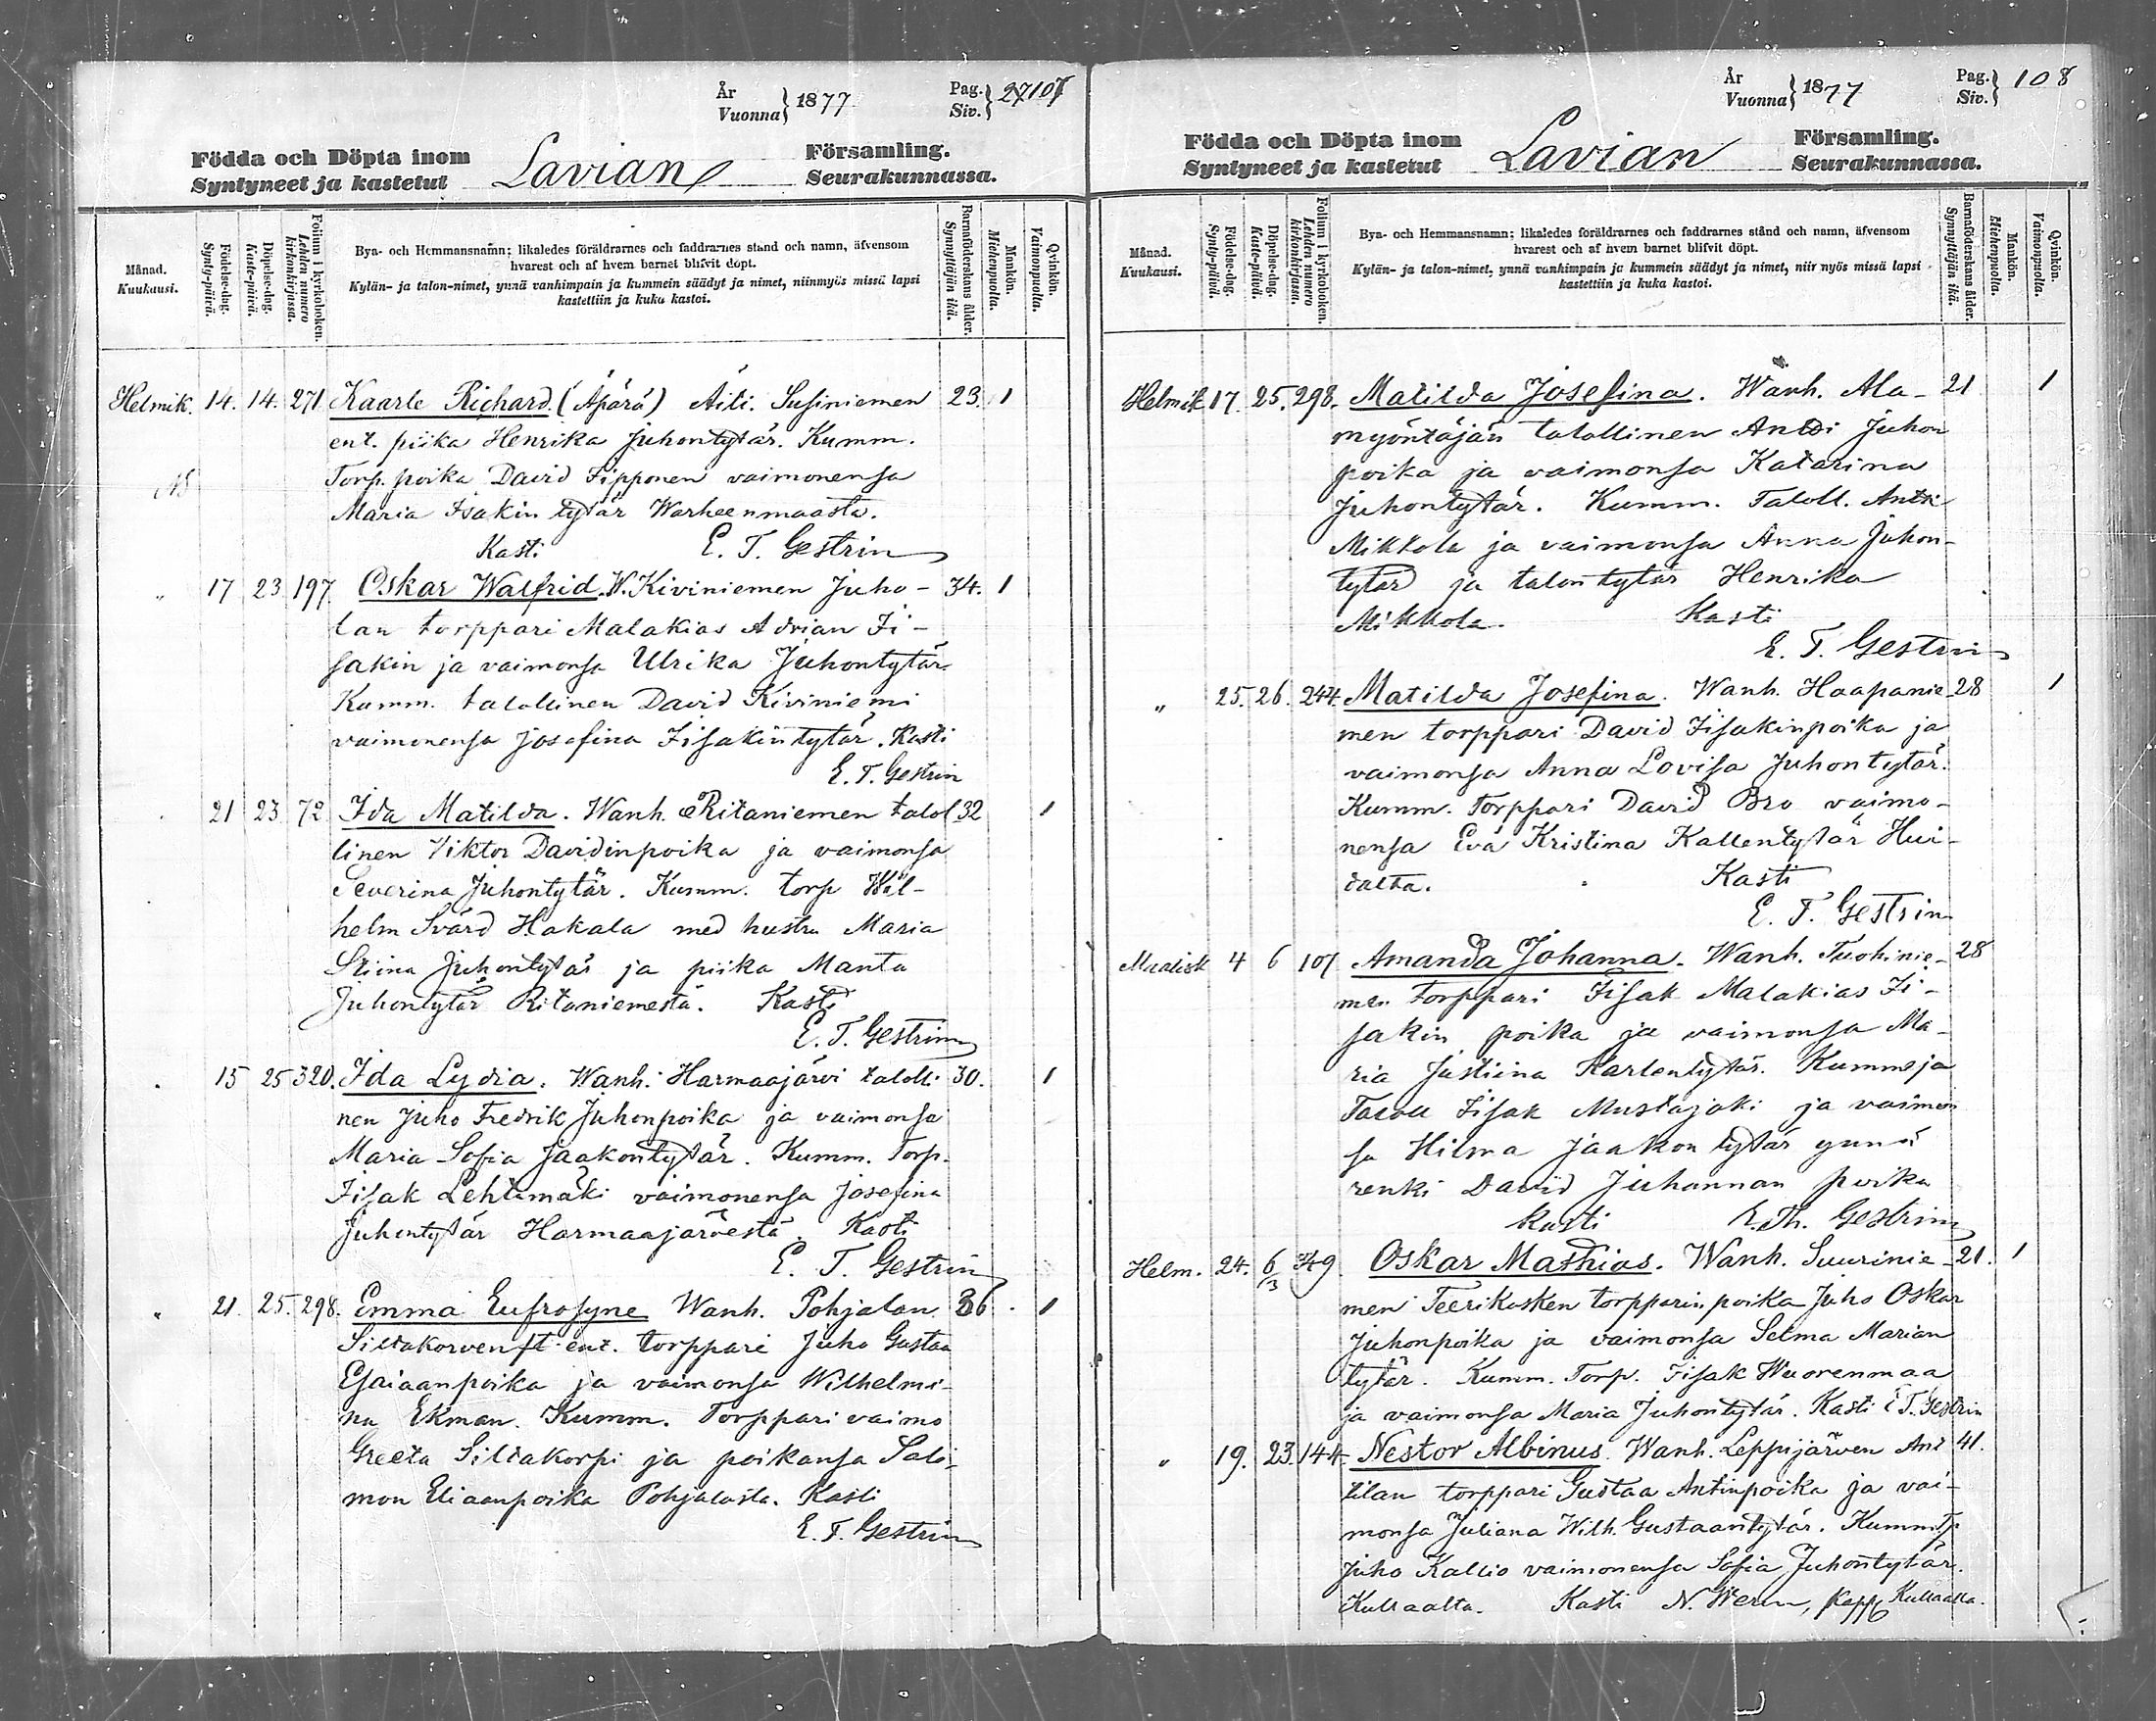 År
Vuonna} 1877
Pag.
Siv.} 107
Födda och Döpta inom
Syntyneet ja kastetut
Lavian
Församling.
Seurakunnassa.
Månad.
Kuukausi.
Födelse-dag.
Synty-päivä.
Döpelse-dag.
Kaste-päivä.
Folium i kyrkoboken.
Lehden numero kirkonkirjassa.
Bya- och Hemmansnamn; likaledes föräldrarnes och faddrarnes stånd och namn, äfvensom
hvarest och af hvem barnet blifvit döpt.
Kylän- ja talon-nimet, ynnä vanhimpain ja kummein säädyt ja nimet, niinmyös missä lapsi
kastettiin ja kuka kastoi.
Barnaföderskans ålder.
Synnyttäjän ikä.
Mankön.
Miehenpuolta.
Qvinkön.
Vaimonpuolta.
Helmik. 14. 14. 271 Kaarle Richard. (Äpärä) Äiti. Susiniemen 23. 1
ent. piika Henrika Juhontytär. Kumm.
Torp. poika David Sipponen vaimonensa
Maria Isakin tytär Warheenmaasta.
Kasti E. T. Gestrin
" 17 23 197 Oskar Walfrid. W. Kiviniemen Juho- 34. 1
lan torppari Malakias Adrian Ii-
sakin ja vaimonsa Ulrika Juhontytär
Kumm. talollinen David Kiviniemi
vaimonensa Josefina Iisakintytär. Kasti
E. T. Gestrin
21 23 72 Ida Matilda. Wanh. Ritaniemen talol 32 1
linen Viktor Davidinpoika ja vaimonsa
Severina Juhontytär. Kumm. torp Wil-
helm Svärd Hakala med hustru Maria
Stiina Juhontytär ja piika Manta
Juhontytär Ritaniemestä. Kasti
E. T. Gestrin
15 25 320. Ida Lydia. Wanh. Harmaajärvi talolli 30. 1
nen Juho Fredrik Juhonpoika ja vaimonsa
Maria Sofia Jaakontytär. Kumm. Torp.
Iisak Lehtimäki vaimonensa Josefina
Juhontytär Harmaajärvestä. Kasti
E. T. Gestrin
" 21. 25. 298. Emma Eufrosyne Wanh. Pohjalan 36. 1
Siltakorven ent. torppari Juho Gustaa
Esaiaanpoika ja vaimonsa Wilhelmi-
na Ekman. Kumm. Torppari vaimo
Greeta Siltakorpi ja poikansa Salo-
mon Eliaanpoika Pohjalasta. Kasti
E. T. Gestrin
År
Vuonna} 1877
Pag.
Siv.} 108
Födda och Döpta inom
Syntyneet ja kastetut
Lavian
Församling.
Seurakunnassa.
Månad.
Kuukausi.
Födelse-dag.
Synty-päivä.
Döpelse-dag.
Kaste-päivä.
Folium i kyrkoboken.
Lehden numero kirkonkirjassa.
Bya- och Hemmansnamn; likaledes föräldrarnes och faddrarnes stånd och namn, äfvensom
hvarest och af hvem barnet blifvit döpt.
Kylän- ja talon-nimet, ynnä vanhimpain ja kummein säädyt ja nimet, niin myös missä lapsi
kastettiin ja kuka kastoi.
Barnaföderskans ålder.
Synnyttäjän ikä.
Mankön.
Miehenpuolta.
Qvinkön.
Vaimonpuolta.
Helmik 17. 25. 298. Matilda Josefina. Wanh. Ala- 21 1
myöntäjän talollinen Antti Juhon
poika ja vaimonsa Katarina
Juhontytär. Kumm. Taloll. Antti
Mikkola ja vaimonsa Anna Juhon-
tytär ja talontytär Henrika
Mikkola. Kasti
E. T. Gestrin
" 25. 26. 244. Matilda Josefina. Wanh. Haapanie- 28 1
men torppari David Iisakinpoika ja
vaimonsa Anna Lovisa Juhontytär.
Kumm. Torppari David Bro vaimo-
nensa Eva Kristina Kallentytär Hui-
dalta. Kasti
E. T. Gestrin
Maalisk 4 6 107 Amanda Johanna. Wanh. Tuohinie- 28
men Torppari Iisak Malakias Ii-
sakin poika ja vaimonsa Ma-
ria Justiina Karlentytär. Kummeja
Taloll Iisak Mustajoki ja vaimon
sa Hilma Jaakon tytär ynnä
renki David Juhannan poika
Kasti E. Th. Gestrin
Helm. 24. 6/3 349. Oskar Mathias. Wanh. Suurinie- 21. 1
men Teerikosken torpparin poika Juho Oskar
Juhonpoika ja vaimonsa Selma Marian
tytär. Kumm. Torp. Iisak Wuorenmaa
ja vaimonsa Maria Juhontytär. Kasti E T. Gestrin
" 19. 23. 144. Nestor Albinus. Wanh. Leppijärven Ant 41.
tilan torppari Gustaa Antinpoika ja vai-
monsa Juliana Wilh. Gustaantytär. Kumm. Tp.
Juho Kallio vaimonensa Sofia Juhontytär.
Kullaalta. Kasti N. , Kapp. Kullaalla.